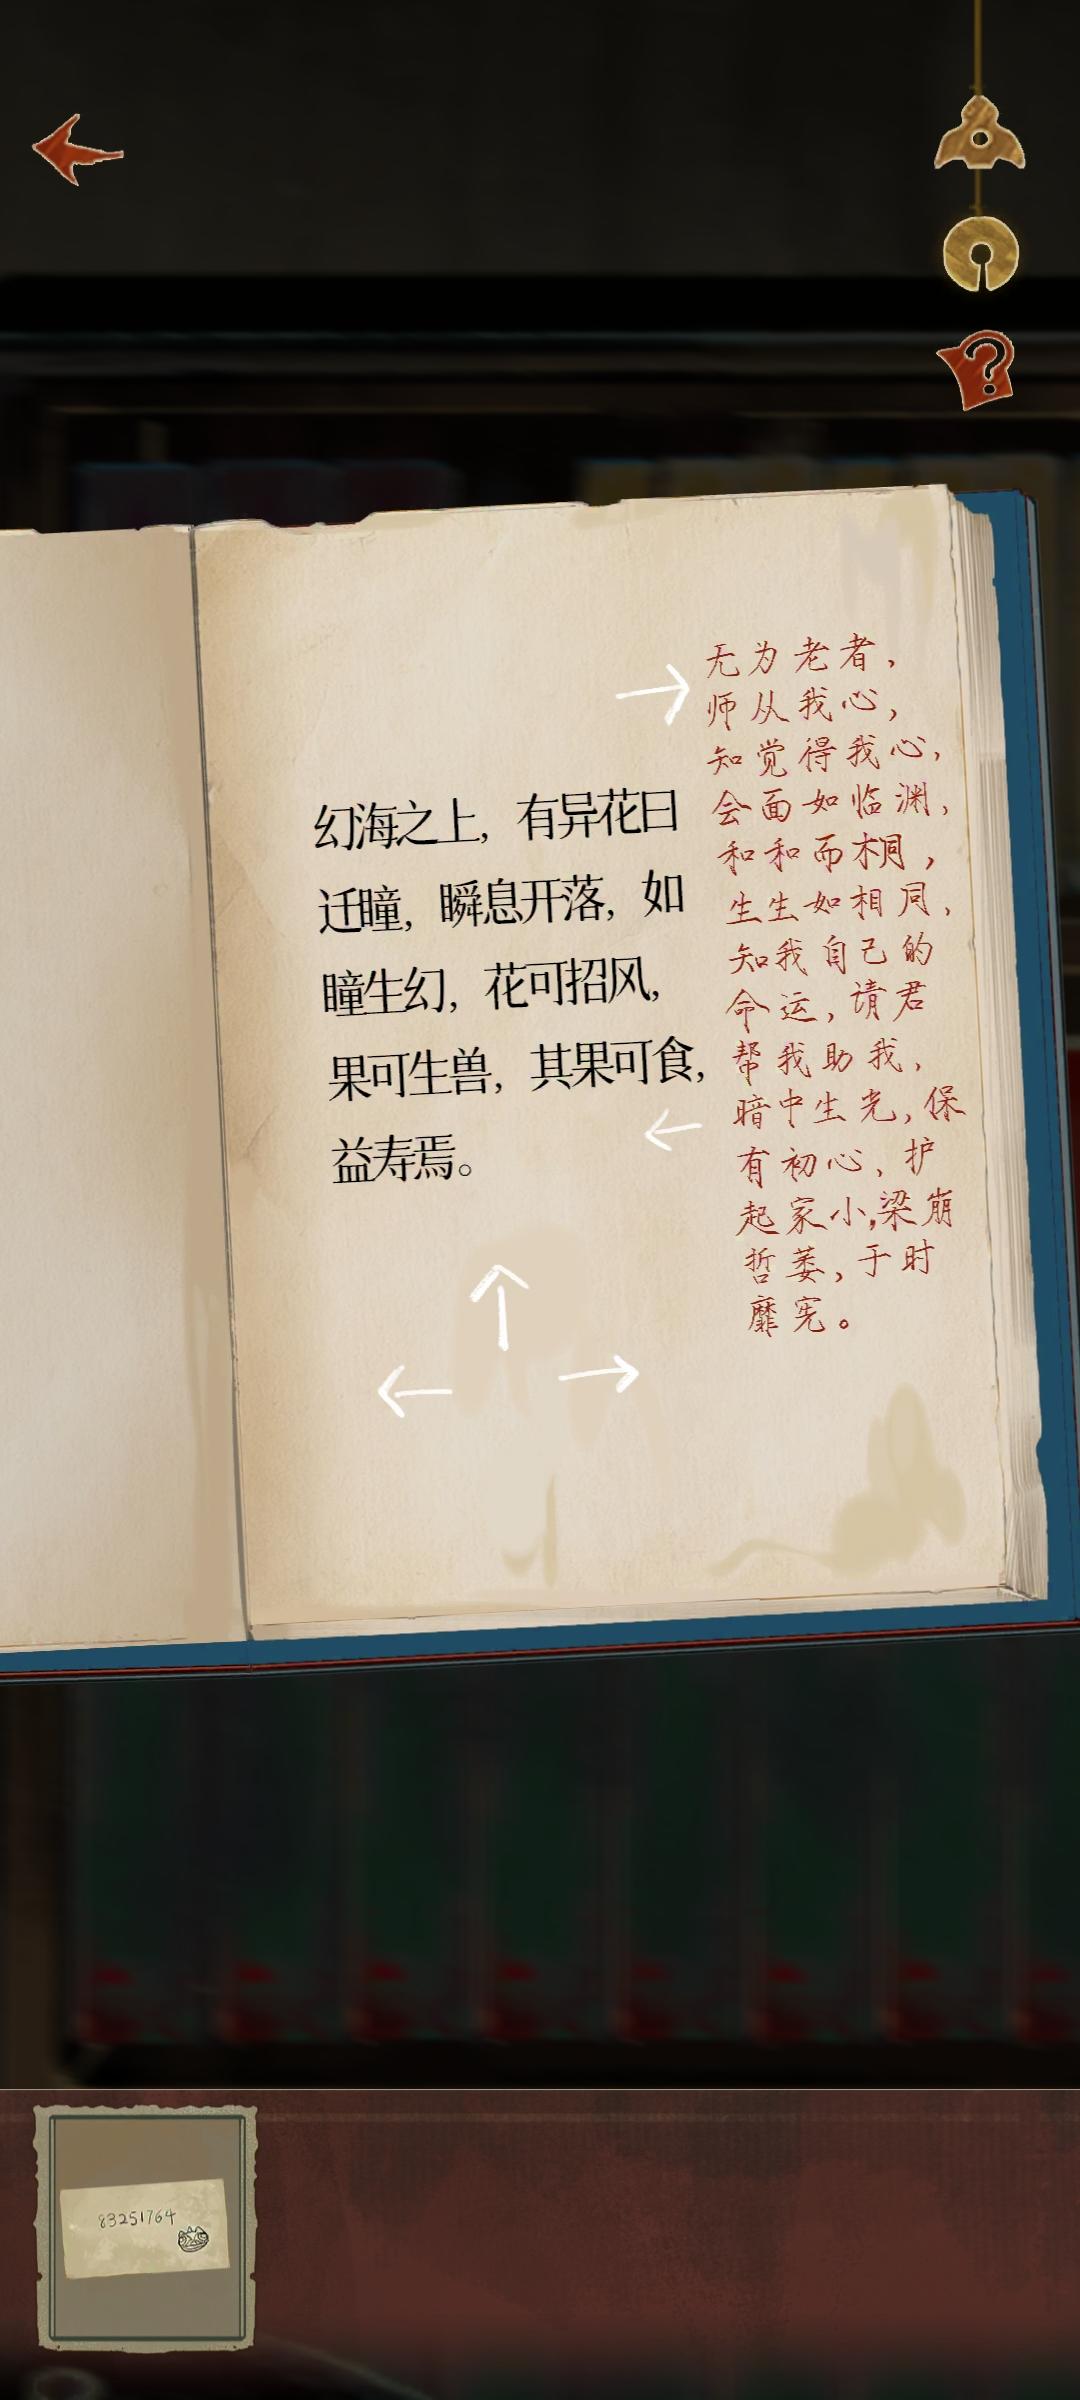 幻海之上，有异花曰
迁瞳，瞬息开落，如
瞳生幻，花可招风，
果可生兽，其果可食，
益寿焉。
无为老者，
师从我心，
知觉得我心，
会面如临渊，
和和而桐，
生生如相同，
知我自己的
命运，请君
帮我助我，
暗中生光，保
有初心，护
起家小，梁崩
哲萎，于时
靡宪。
83251764